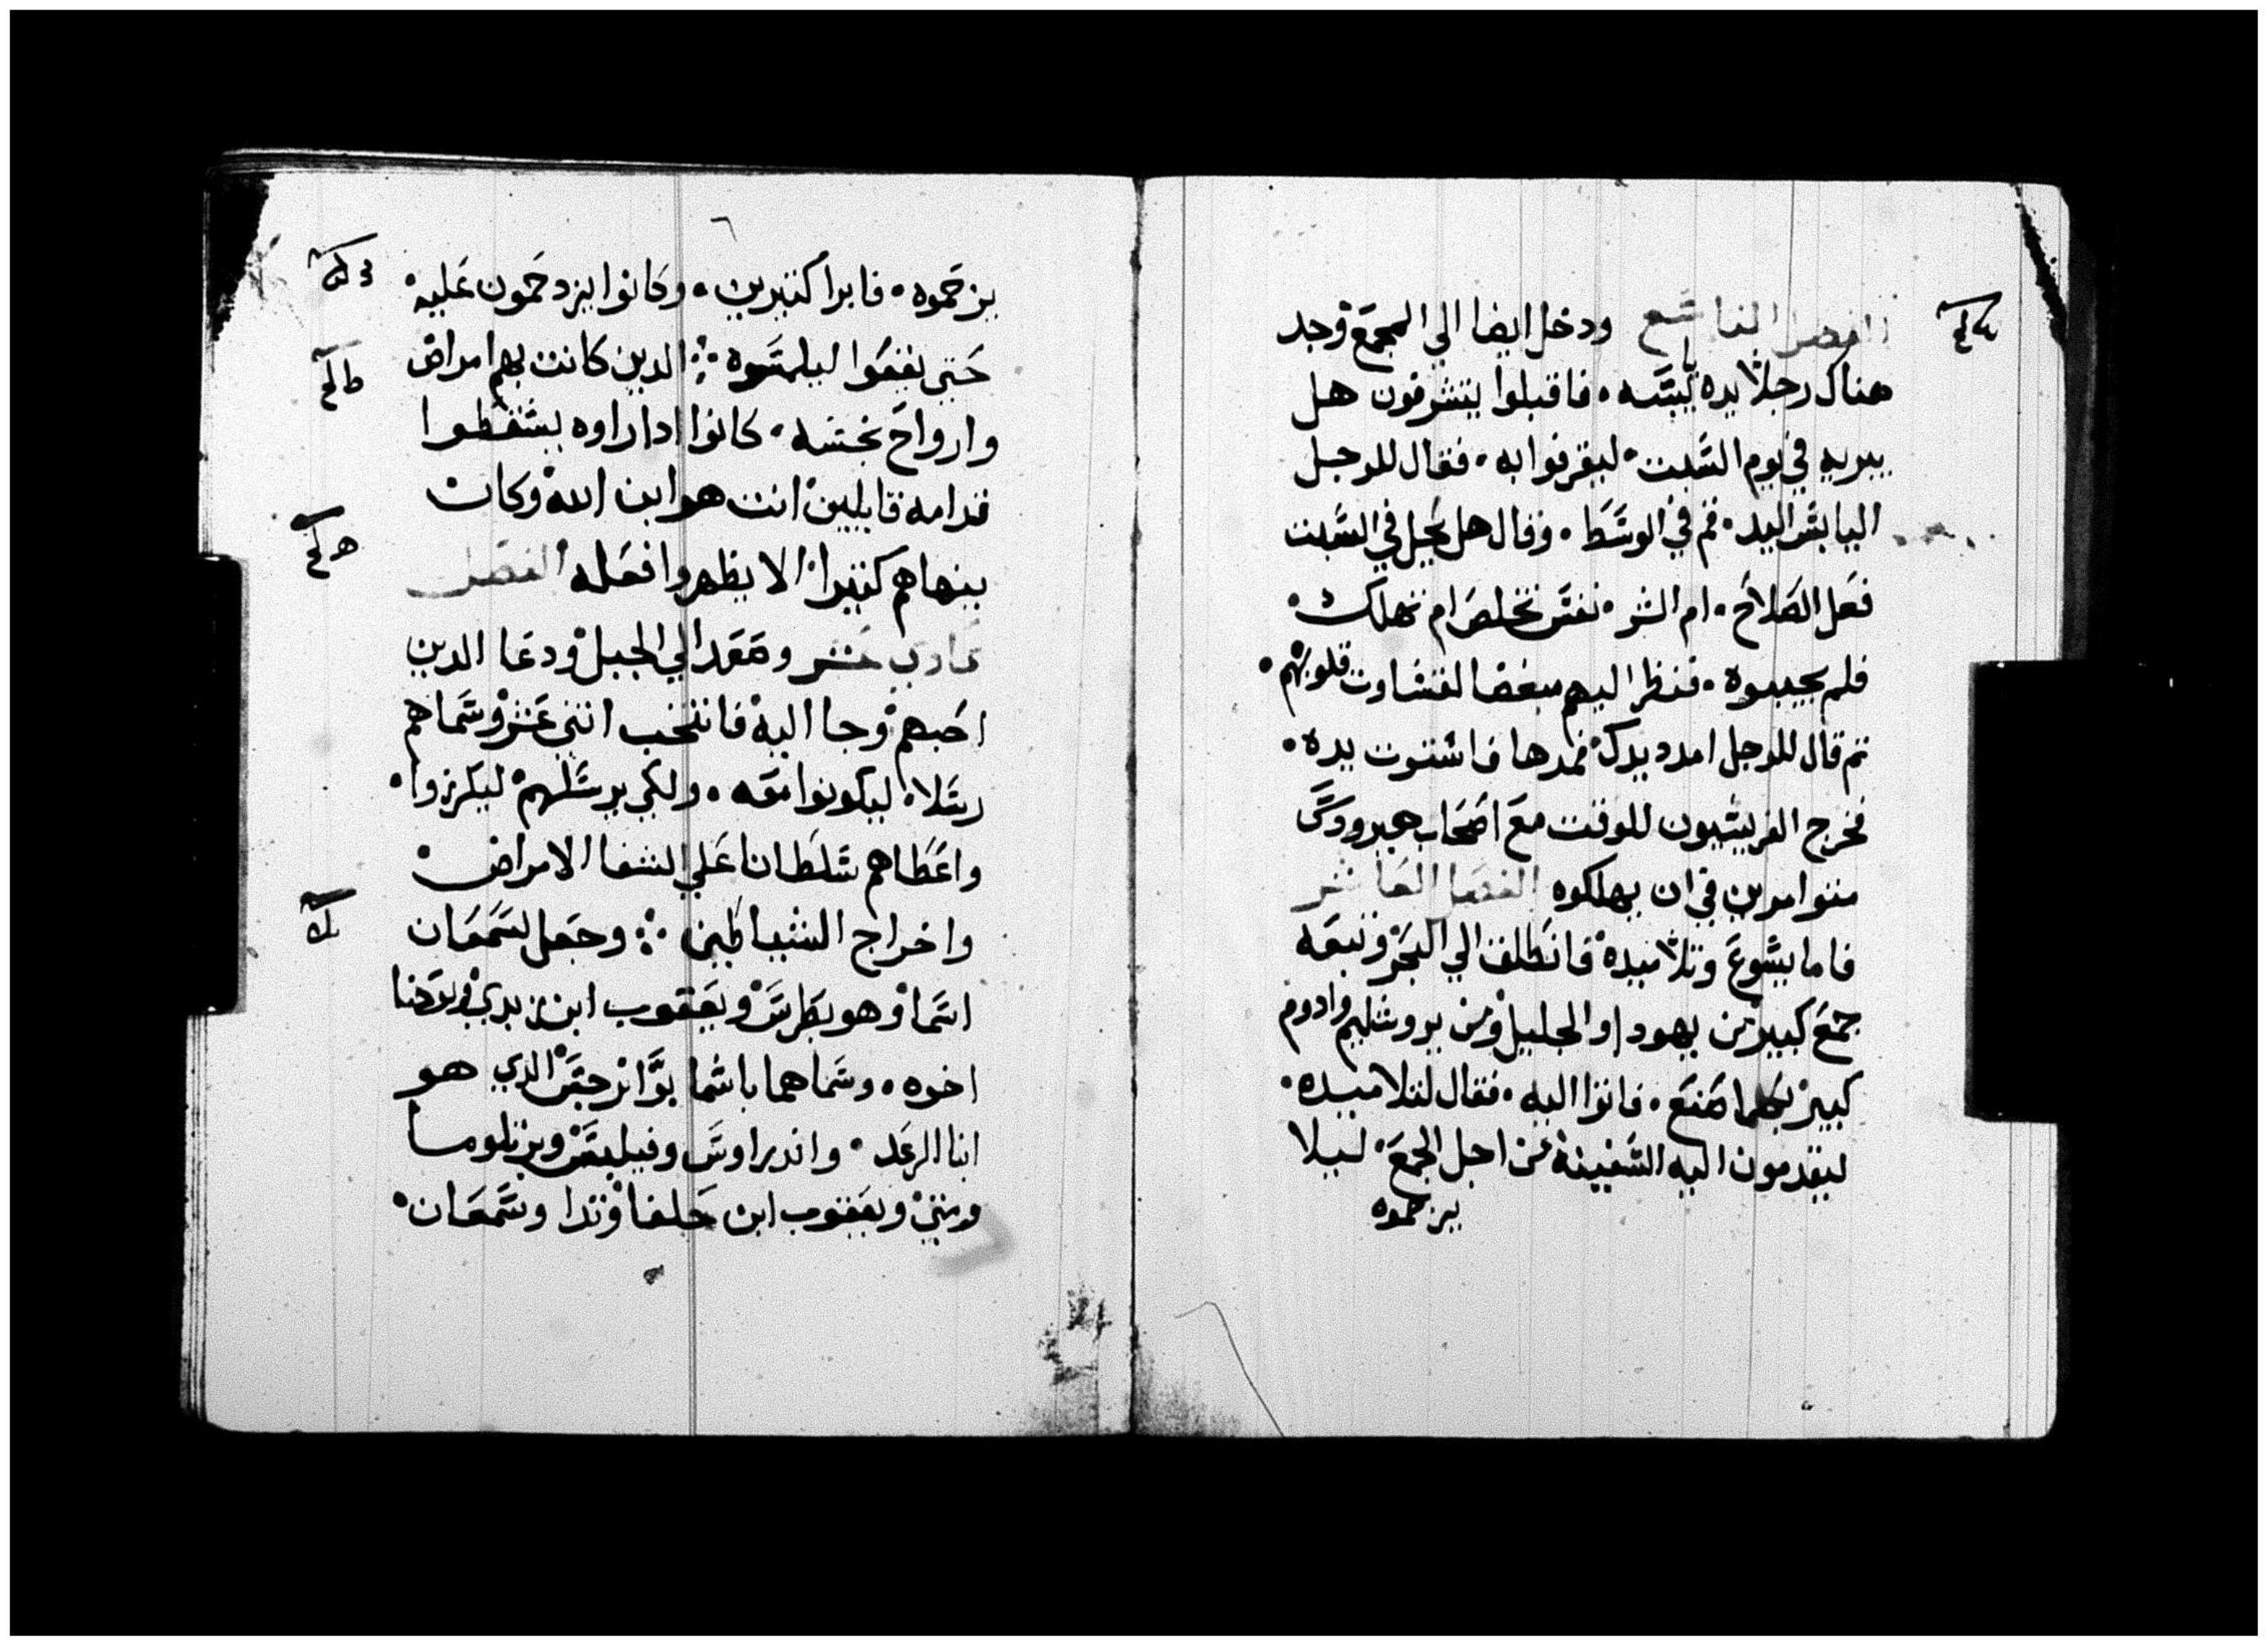 الفصل التاسع ودخل ايضا الي المجمع وجد
هناك رجلا يده يابسه. فاقبلوا يتشرفون هل
يبريه في يوم السبت. ليقرفوا به. فقال للرجل
اليابس اليد. قم في الوسط. وقال هل يحل في السبت
فعل الصلاح. ام الشر. نفس تخلص ام تهلك.
فلم يجيبوه. فنظر اليهم مبغضا لقساوت قلوبهم.
ثم قال للرجل امدد يدك فمدها فاستوت يده.
فخرج الفريسيون للوقت مع اصحاب هيرودس
متوامرين في ان يهلكوه الفصل العاشر
فاما يسوع وتلاميده فانطلق الي البحر وتبعه
جمع كبير من يهودا والجليل ومن يروشليم وادوم
كبير بكلما صنع. فاتوا اليه. فقال لتلاميده.
ليقدمون اليه السفينة من اجل الجمع. ليلا
يزحموه
يزحموه. فابرا كتيرين. وكانوا يزدحمون عليه
حتي يقفوا ليلمسوه الدين كانت بهم امراض
وارواح نجسه. كانوا ادا راوه يسقطوا
قدامه قايلين انت هو ابن الله وكان
ينهاهم كتيرا الا يظهروا فعله الفصل
حادي عشر وصعد الي الجبل ودعا الدين
احبهم وجا اليه فانتخب اتني عشر وسماهم
رسلا. ليكونوا معه. ولكي يرسلهم ليكرزوا.
واعطاهم سلطانا علي الشفا الامراض
واخراج الشياطين وجعل لسمعان
اسما وهو بطرس ويعقوب ابن زبدي ويوحنا
اخوه. وسماهما باسما بوانرجس الدي هو
ابنا الرعد. واندراوس وفيليبس وبرتلوما
ومتي ويعقوب ابن حلفا وتدا وسمعان.